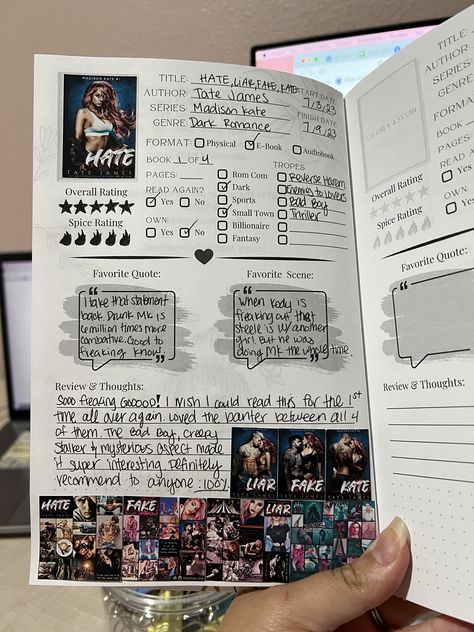 MADISON KATE #1
HATE
TATE JAMES
TITLE: HATE, LIAR, FAKE, KATE
START DATE
7/3/23
AUTHOR: Tate James
SERIES: Madison Kate
FINISH DATE
7/9/23
GENRE: Dark Romance
FORMAT: Physical E-Book Audiobook
BOOK 1 OF 4
PAGES:
READ AGAIN?
Yes No
OWN:
Yes No
Overall Rating
Spice Rating
Rom Com
Dark
Sports
Small Town
Billionaire
Fantasy
TROPES
Reverse Harem
Enemies to Lovers
Bad Boy
Thriller
Favorite Quote:
I take that statement
back. Drunk MK is
a million times more
combative. Good to
freaking know.
Favorite Scene:
When Kody is
freaking out that
Steele is w/ another
girl. But he was
doing MK the whole time.
Review & Thoughts:
Sooo freaking Gooood! I wish I could read this for the 1st
time all over again. Loved the banter between all 4
of them. The Bad Boy, creepy
stalker & mysterious aspect made
it super interesting. Definitely
recommend to anyone. 100%
LIAR
TATE JAMES
FAKE
TATE JAMES
KATE
TATE JAMES
HATE
FAKE
LIAR
TITLE:
AUTHOR
SERIES
GENRE:
FORMAT:
BOOK
PAGES
READ AGAIN?
Yes No
OWN:
Yes No
Overall Rating
Spice Rating
Favorite Quote:
Review & Thoughts: